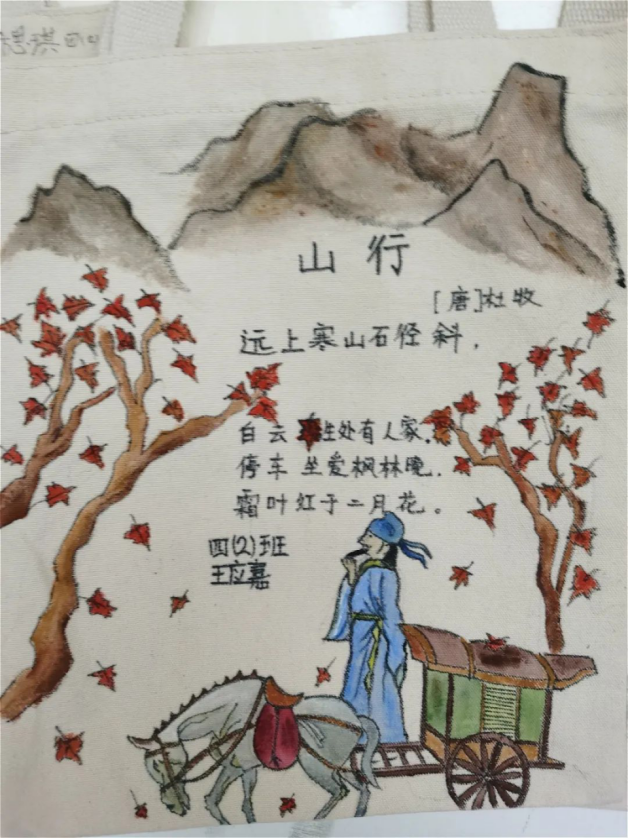 琪四(2)
山行
[唐]杜牧
远上寒山石径斜，
白云生处有人家，
停车坐爱枫林晚．
霜叶红于二月花。
四(2)班
王应嘉